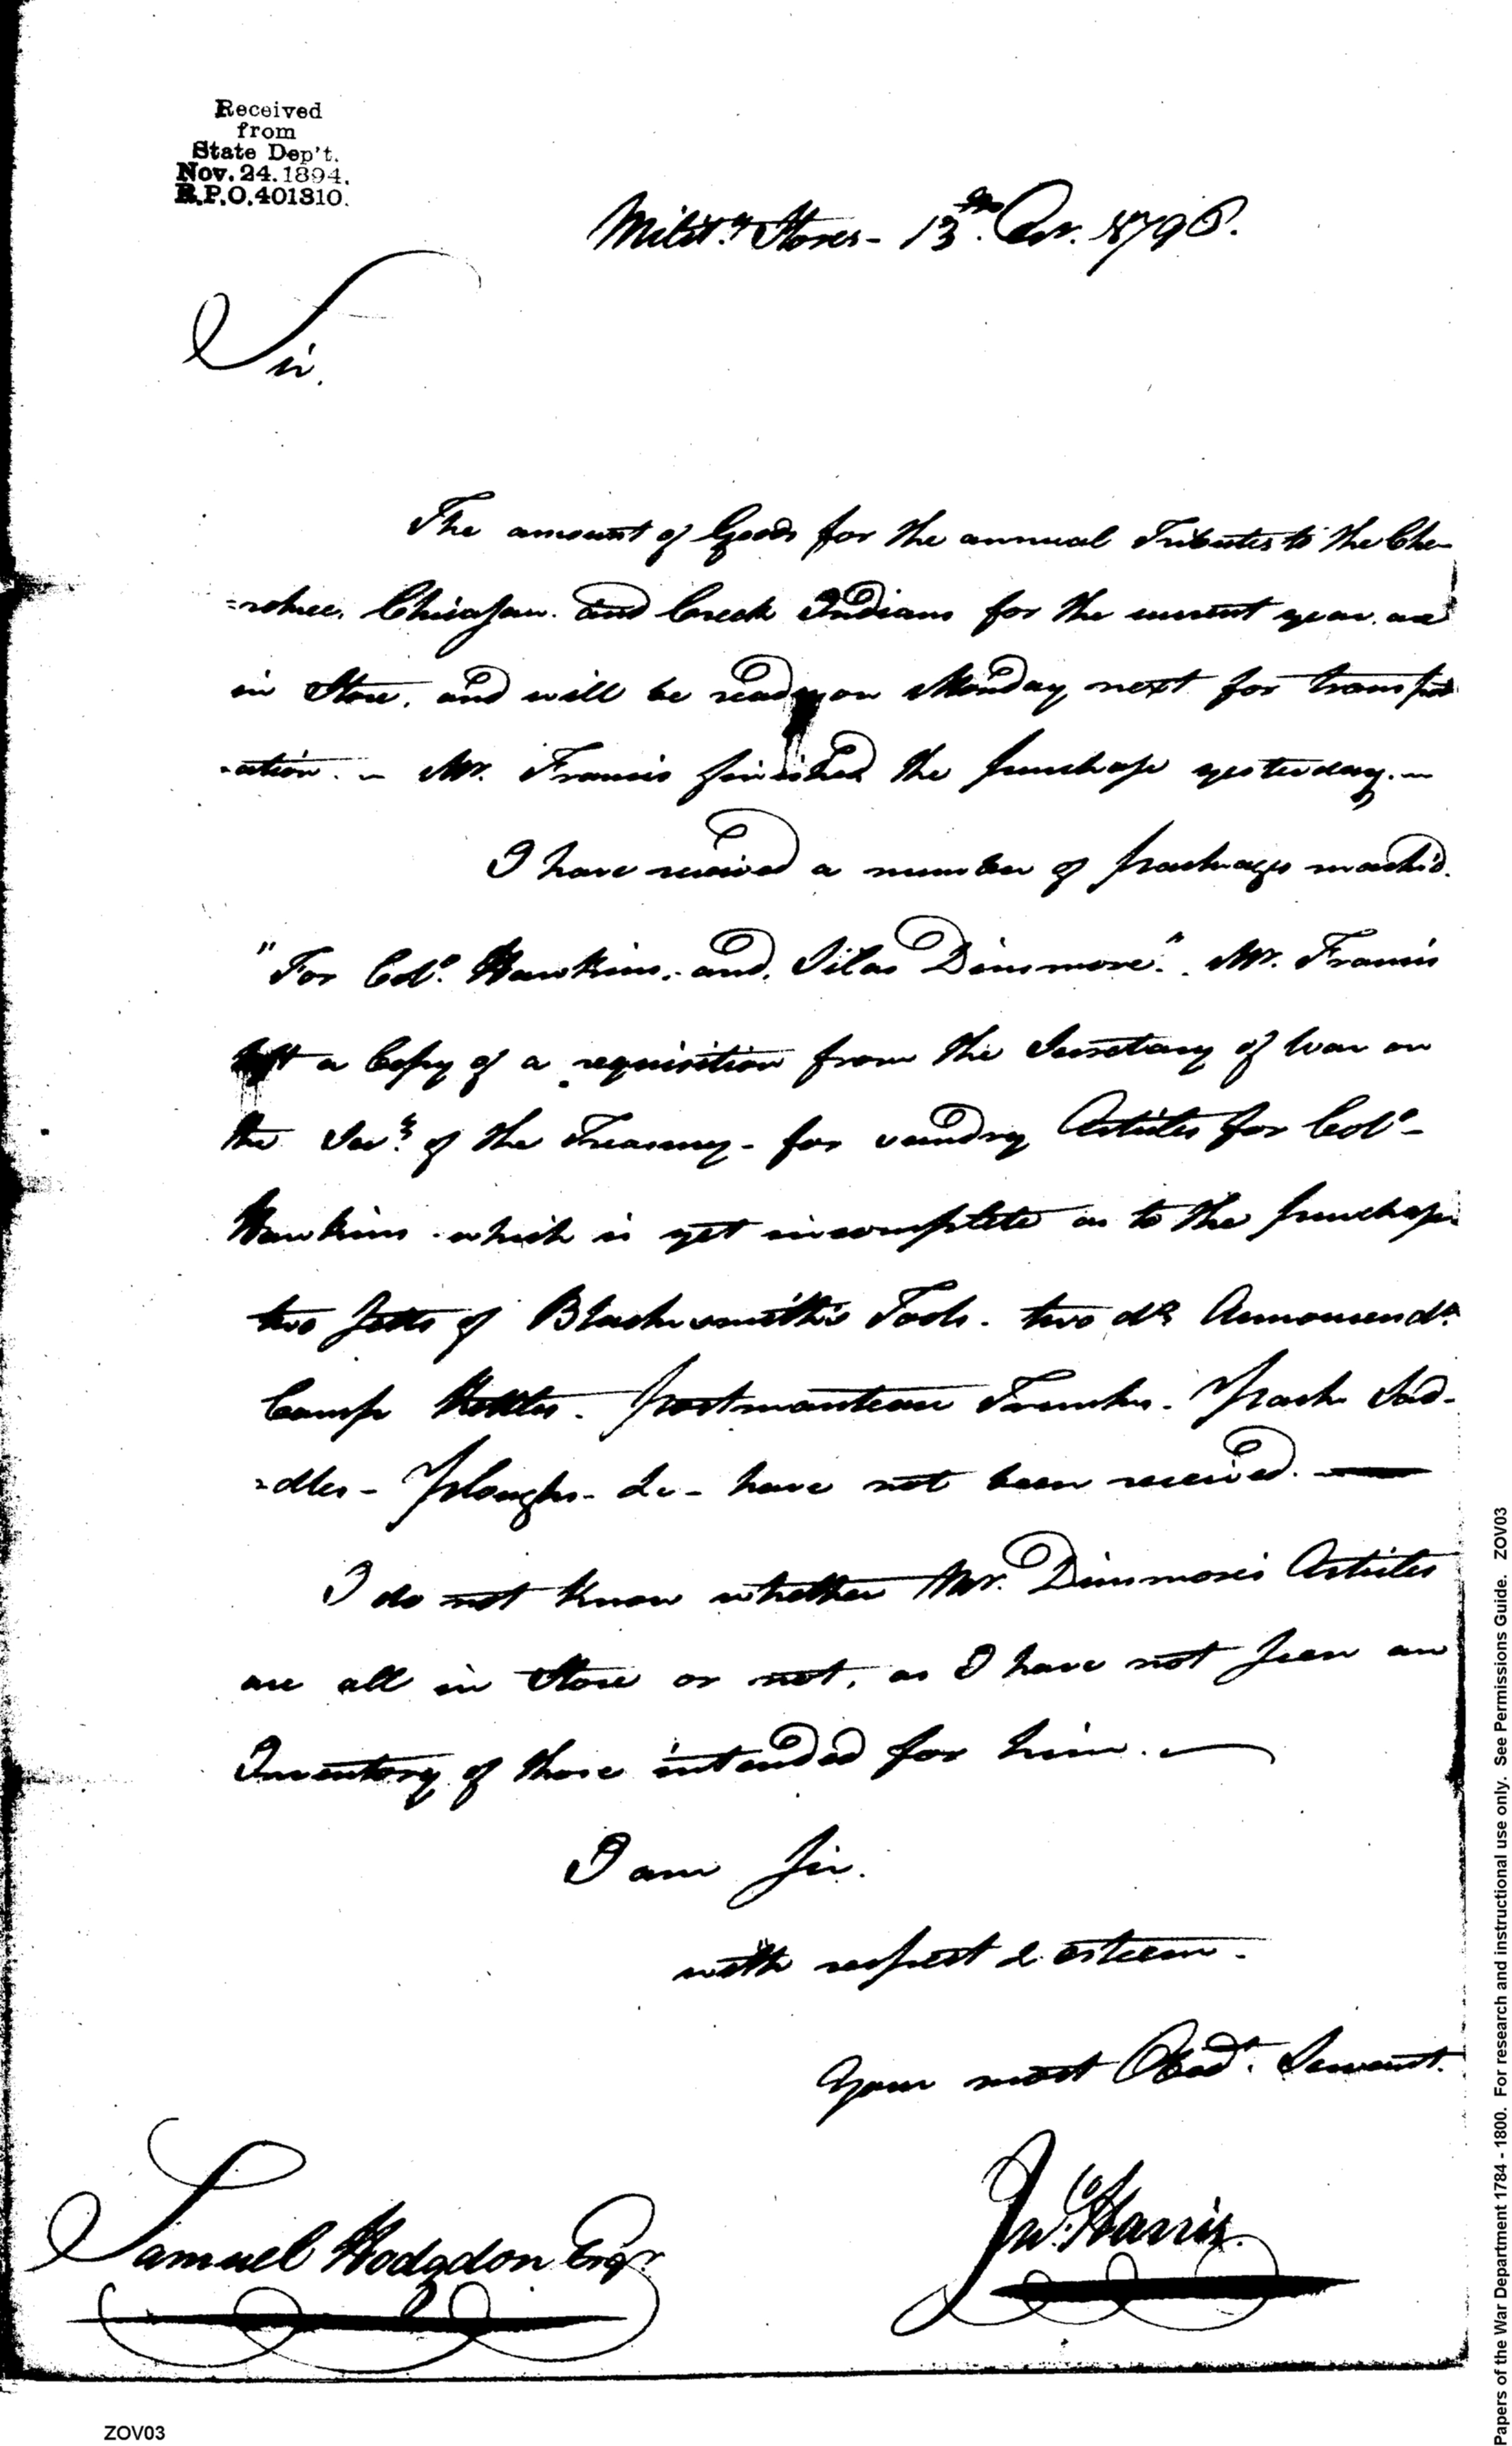 Received
from
State Dep't.
Nov. 24. 1894.
R.P.O. 401310.
Milit.y Stores - 13th. 1796.
Sir.
The amount of Goods for the annual Tributes to the Che-
=rokee. Chicasaw. and Creek Indians for the current year. are
in Store, and will be ready on Monday next for transpor
-ation. - Mr. Francis finished the purchase yesterday. -
I have received a number of packages mark'd.
"For Colo. Hawkins. and. Silas Dinsmore". Mr. Francis
left a Copy of a requisition from the Secretary of War on
the Secy. of the Treasury - for sundry Articles for Colo. -
Hawkins - which is yet incomplete as to the purchase
two setts of Blacksmith's Tools. two do.
Camp Kettles. portmanteau Trunks. Pack Sad-
=dles - Ploughs - &c - have not been received. —
I do not know whether Mr. Dinsmore's Articles
are all in Store or not, as I have not seen an
Inventory of those intended for him. —
I am Sir.
with respect & esteem -
Your most Obedt. Servant.
Jno. Harris.
Samuel Hodgdon Esqr.
ZOV03
Papers of the War Department 1784 - 1800. For research and instructional use only. See Permissions Guide. ZOV03